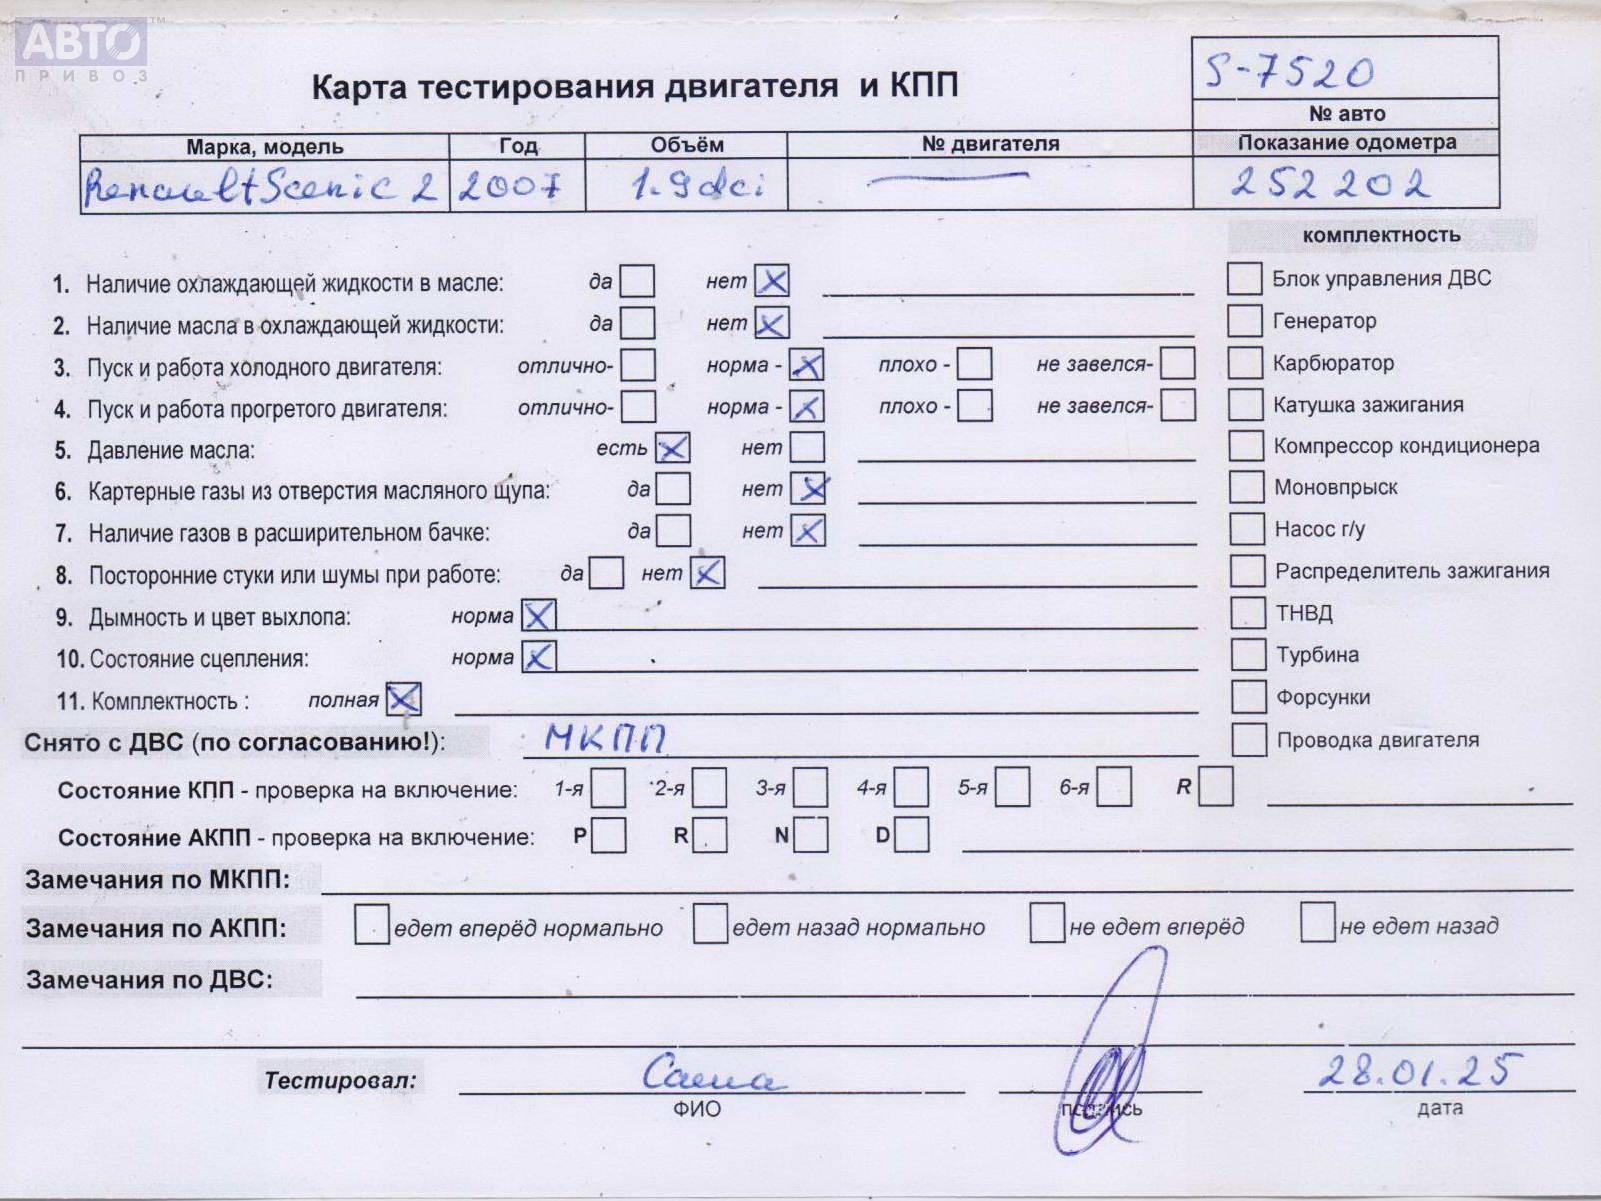 АВТО ™
ПРИВОЗ
S-7520
Карта тестирования двигателя и КПП
№ авто
Марка, модель Год Объём № двигателя Показание одометра
Renault Scenic 2 2007 1.9 dci 252 202
комплектность
1. Наличие охлаждающей жидкости в масле: да нет X Блок управления ДВС
2. Наличие масла в охлаждающей жидкости: да нет X Генератор
3. Пуск и работа холодного двигателя: отлично- норма - X плохо - не завелся- Карбюратор
4. Пуск и работа прогретого двигателя: отлично- норма - X плохо - не завелся- Катушка зажигания
5. Давление масла: есть X нет Компрессор кондиционера
6. Картерные газы из отверстия масляного щупа: да нет X Моновпрыск
7. Наличие газов в расширительном бачке: да нет X Насос г/у
8. Посторонние стуки или шумы при работе: да нет X Распределитель зажигания
9. Дымность и цвет выхлопа: норма X ТНВД
10. Состояние сцепления: норма X Турбина
11. Комплектность : полная X Форсунки
Снято с ДВС (по согласованию!): МКПП Проводка двигателя
Состояние КПП - проверка на включение: 1-я 2-я 3-я 4-я 5-я 6-я R
Состояние АКПП - проверка на включение: P R N D
Замечания по МКПП:
Замечания по АКПП: едет вперёд нормально едет назад нормально не едет вперёд не едет назад
Замечания по ДВС:
Тестировал: Саша 28.01.25
ФИО подпись дата